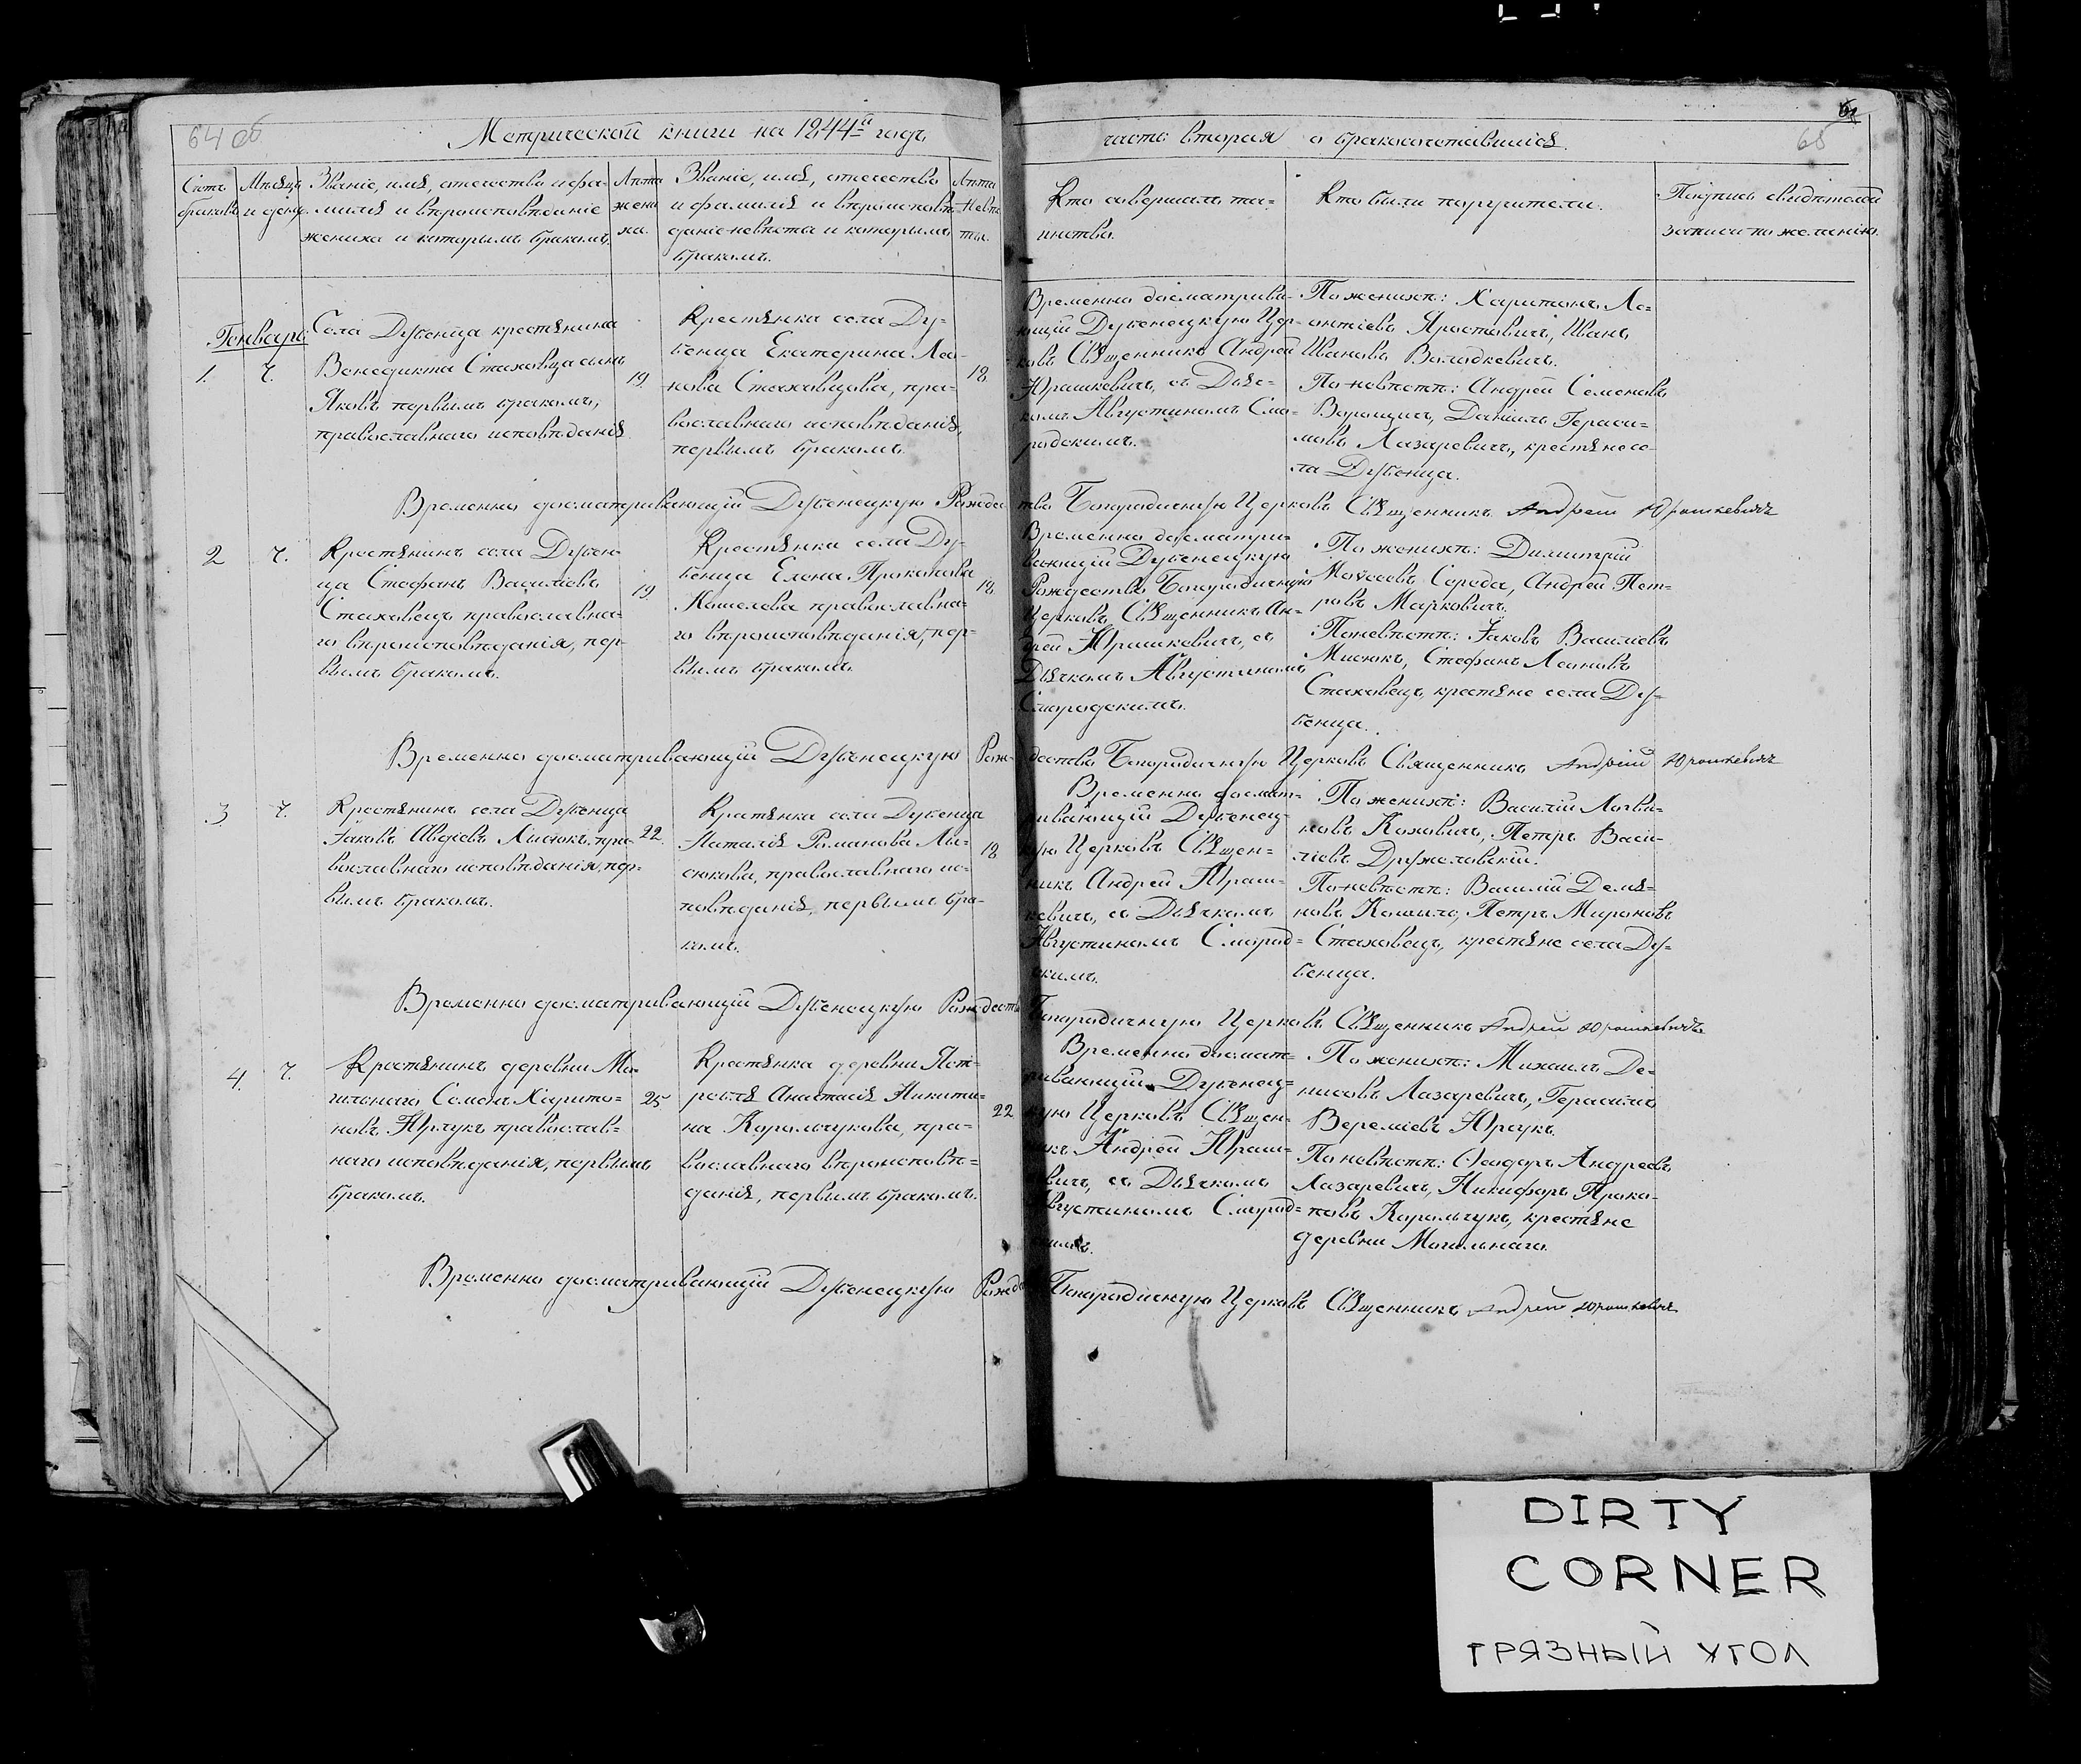 64 об
Метрической книги на 1844й годъ
часть вторая о бракосочетавшихся.
65
Счетъ
браковъ
Мѣсяцъ
и день.
Званіе, имя, отечество и фа-
милія и вѣроисповѣданіе
жениха и которымъ бракомъ.
Лѣта
жени-
ха.
Званіе, имя, отечество
и фамилія и вѣроисповѣ-
даніе невѣсты и которымъ
бракомъ.
Лѣта
невѣс-
ты.
Кто совершалъ та-
инство.
Кто были поручители.
Подпись свидѣтелей
записи по желанію.
Генварь
1. 7.
Села Дубенца крестьянина
Венедикта Стаховца сынъ
Яковъ первымъ бракомъ,
православнаго исповѣданія
19.
Крестьянка села Ду-
бенца Екатерина Лео-
нова Стаховцова, пра-
вославнаго исповѣданія,
первымъ бракомъ.
18
Временно досматрива-
ющій Дубенецкую Цер-
ковь Священникъ Андрей
Юрашкевичъ, съ Дьяч-
комъ Августиномъ Смо-
родскимъ.
По женихѣ: Харитонъ Ле-
онтіевъ Яростовичъ, Иванъ
Ивановъ Володкевичъ.
По невѣстѣ: Андрей Семеновъ
Ворощичъ, Даніилъ Гераси-
мовъ Лазаревичъ, крестьяне се-
ла Дубенца.
Временно досматривающій Дубенецкую Рождес-
тво Богородичную Церковь Священникъ Андрей Юрашкевичъ
2 7.
Крестьянинъ села Дубен-
ца Стефанъ Василіевъ
Стаховецъ православна-
го вѣроисповѣданія, пер-
вымъ бракомъ.
19.
Крестьянка села Ду-
бенца Елена Прокопова
Кошелева православна-
го вѣроисповѣданія, пер-
вымъ бракомъ.
18.
Временно досматри-
вающій Дубенецкую
Рождество Богородичную
Церковь Священникъ Ан-
дрей Юрашкевичъ, съ
Дьячкомъ Августиномъ
Смородскимъ.
По женихѣ: Димитрій
Моѵсеевъ Середа, Андрей Пет-
ровъ Марковичъ.
По невѣстѣ: Іаковъ Василіевъ
Мисюкъ, Стефанъ Леоновъ
Стаховецъ, крестьяне села Ду-
бенца.
Временно досматривающій Дубенецкую Рож-
дество Богородичную Церковь Священникъ Андрей Юрашкевичъ
3 7.
Крестьянинъ села Дубенца
Іаковъ Авдіевъ Лысюкъ, пра-
вославнаго исповѣданія, пер-
вымъ бракомъ.
22.
Крестьянка села Дубенца
Наталія Романова Лы-
сюкова, православнаго ис-
повѣданія, первымъ бра-
комъ.
18
Временно досмат-
ривающій Дубенец-
кую Церковь Священ-
никъ Андрей Юраш-
кевичъ, съ Дьячкомъ
Августиномъ Смород-
скимъ.
По женихѣ: Василій Логви-
новъ Коховичъ, Петръ Васи-
ліевъ Дружеловскій.
По невѣстѣ: Василій Демья-
новъ Кошило, Петръ Мироновъ
Стаховецъ, крестьяне села Ду-
бенца.
Временно досматривающій Дубенецкую Рождество
Богородичную Церковь Священникъ Андрей Юрашкевичъ
4. 7.
Крестьянинъ деревни Мо-
гильнаго Семенъ Харито-
новъ Юрчукъ православ-
наго исповѣданія, первымъ
бракомъ.
25
Крестьянка деревни
Анастасія Никити-
на Корольчукова, пра-
вославнаго вѣроисповѣ-
данія, первымъ бракомъ.
22
Временно досмат-
ривающій Дубенец-
кую Церковь Священ-
никъ Андрей Юраш-
кевичъ, съ Дьячкомъ
Августиномъ Смород-
скимъ.
По женихѣ: Михаилъ Де-
нисовъ Лазаревичъ, Герасимъ
Веремѣевъ Юрчукъ.
По невѣстѣ: Ѳеодоръ Андреевъ
Лазаревичъ, Никифоръ Проко-
повъ Корольчукъ, крестьяне
деревни Могильнаго.
Временно досматривающій Дубенецкую Рождество
Богородичную Церковь Священникъ Андрей Юрашкевичъ
DIRTY
CORNER
ГРЯЗНЫЙ УГОЛ